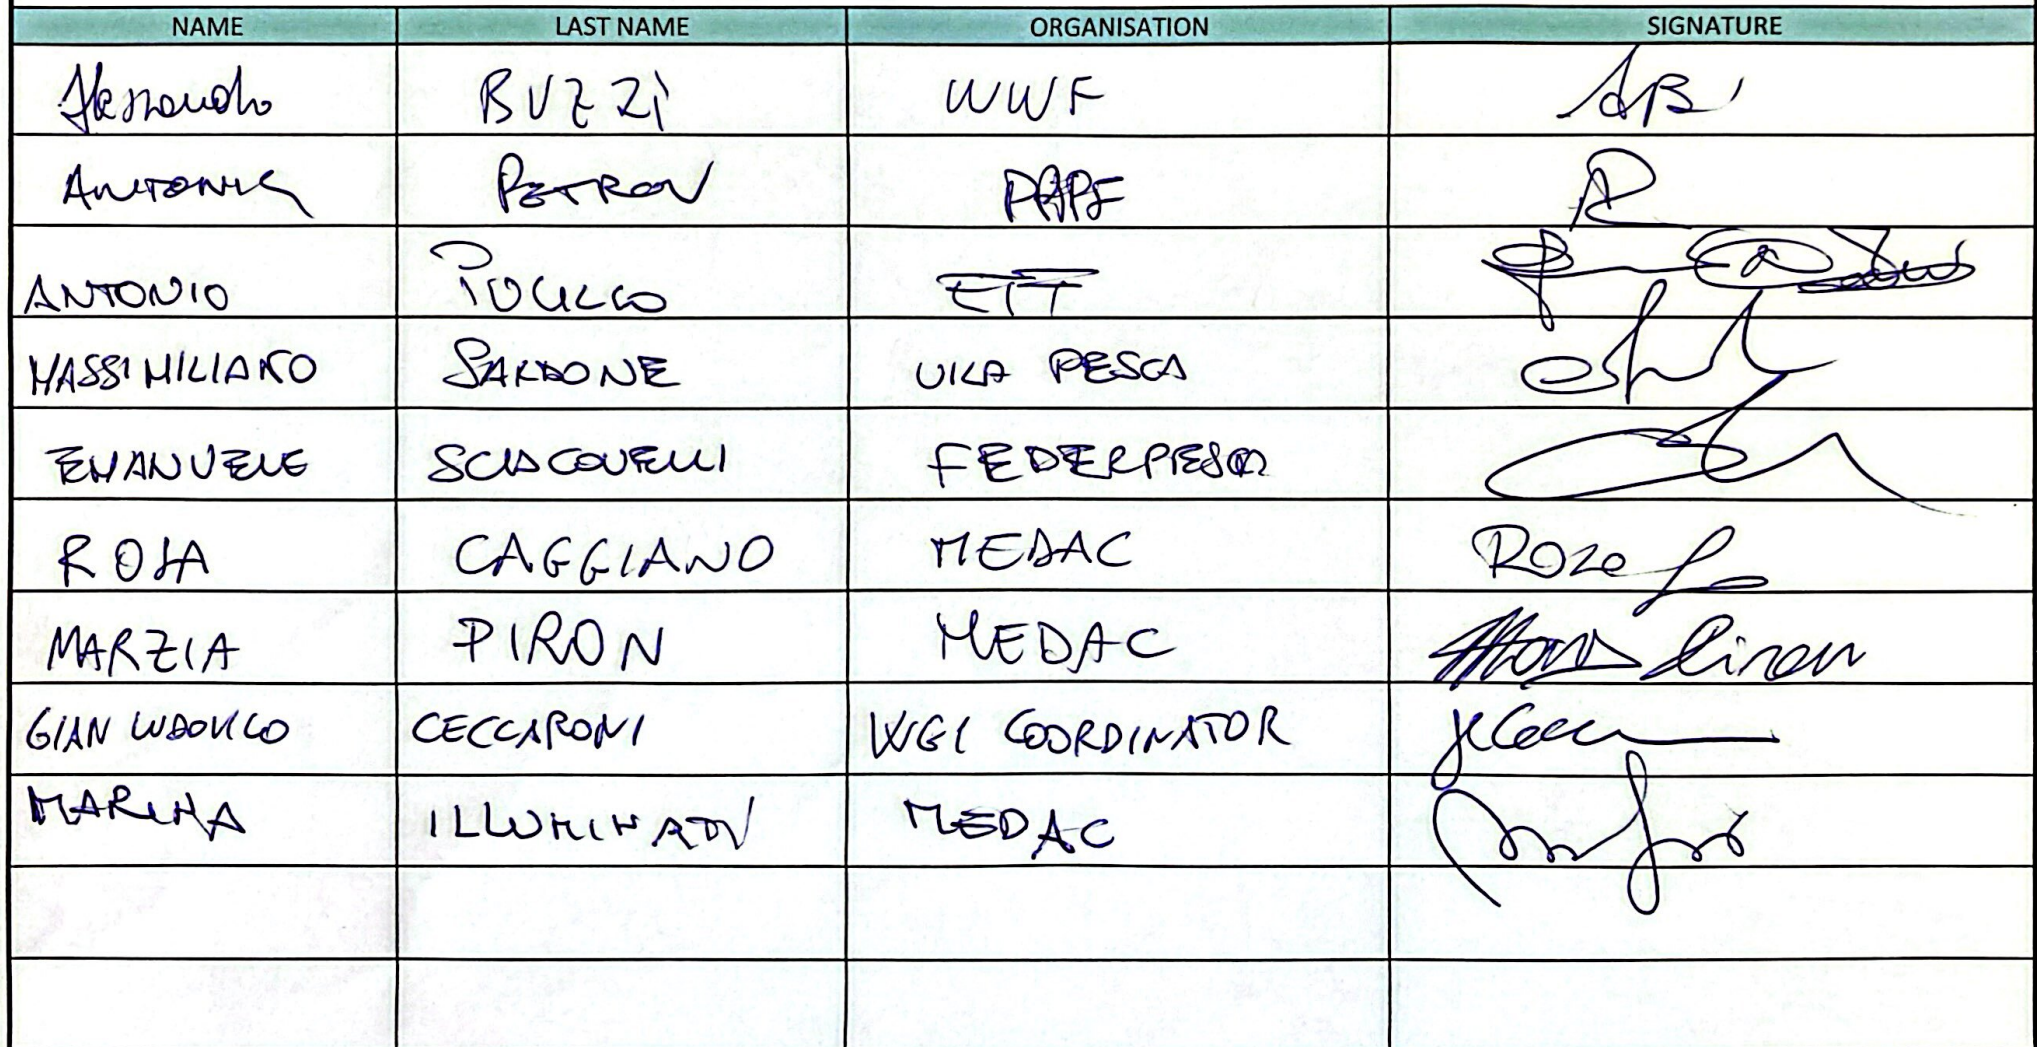 NAME LAST NAME ORGANISATION SIGNATURE
Alessandro BUZZI WWF AB
ANTONIS PETROU PAPF
ANTONIO PUCILLO ETF
MASSIMILIANO SARDONE UILA PESCA
EMANUELE SCIACOVELLI FEDERPESCA
ROSA CAGGIANO MEDAC Rosa
MARZIA PIRON MEDAC Marzia Piron
GIAN LUDOVICO CECCARONI WG1 COORDINATOR
MARINA ILLUMINATI MEDAC